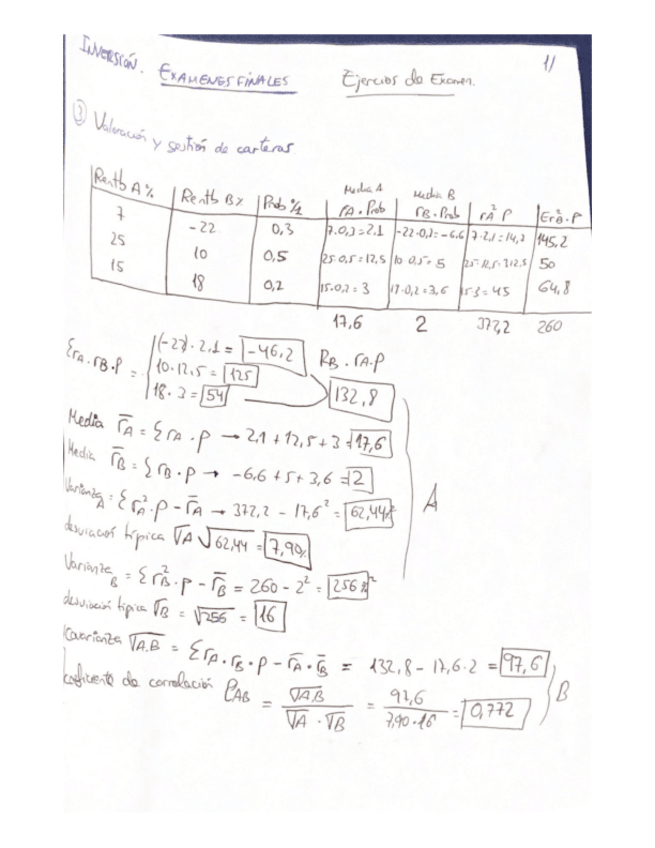 INVERSIÓN. EXAMENES FINALES Ejercios de Examen. 1/
③ Valoración y gestión de carteras
Rentb A % | Rentb B % | Prob %1 | Media A rA . Prob | Media B rB . Prob | rA² P | ΣrB² . P
7 | -22 | 0,3 | 7.0,3=2.1 | -22.0,3=-6.6 | 7.2,1=14,7 | 145,2
25 | 10 | 0,5 | 25.0,5=12,5 | 10.0,5=5 | 25.12,5=312,5 | 50
15 | 18 | 0,2 | 15.0,2=3 | 0,2=3,6 | 15.3=45 | 64,8
17,6 2 372,2 260
ΣrA.rB.P =
(-22) . 2,1 = -46,2 RB . rA.P
10.12,5 = 125
18 . 3 = 54 132,8
Media r̄A = ΣrA . P → 2,1 + 12,5 + 3 = 17,6
Media r̄B = ΣrB . P → -6,6 + 5 + 3,6 = 2
Varianza A = ΣrA² . P - r̄A → 372,2 - 17,6² = 62,44%² A
desviación típica √A √62,44 = 7,90%
Varianza B = ΣrB² . P - r̄B = 260 - 2² = 256%²
desviación típica √B = √256 = 16
Covarianza √A.B = ΣrA . rB . P - r̄A . r̄B = 132,8 - 17,6.2 = 97,6
coeficiente de correlación ρAB = √AB / √A . √B = 97,6 / 7,90.16 = 0,772 B